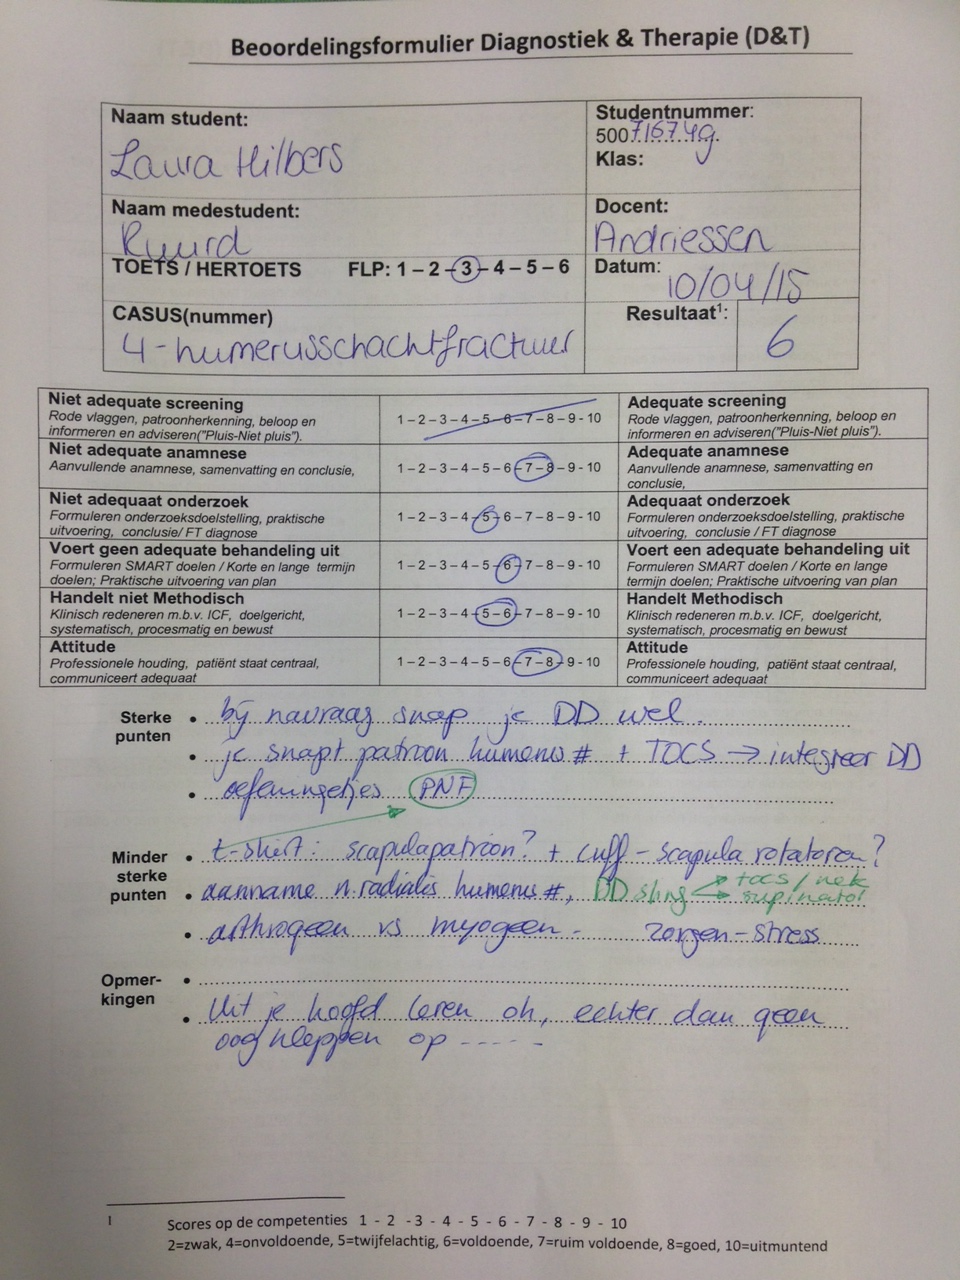 Beoordelingsformulier Diagnostiek & Therapie (D&T)
Naam student:
Laura Hilbers
Studentnummer:
500716749.
Klas:
Naam medestudent:
Ruurd
Docent:
Andriessen
TOETS / HERTOETS FLP: 1 – 2 – 3 – 4 – 5 – 6
Datum:
10/04/15
CASUS(nummer)
4-humerusschachtfractuur
Resultaat¹:
6
Niet adequate screening
Rode vlaggen, patroonherkenning, beloop en
informeren en adviseren("Pluis-Niet pluis").
1 – 2 – 3 – 4 – 5 – 6 – 7 – 8 – 9 - 10
Adequate screening
Rode vlaggen, patroonherkenning, beloop en
informeren en adviseren("Pluis-Niet pluis").
Niet adequate anamnese
Aanvullende anamnese, samenvatting en conclusie,
1 – 2 – 3 – 4 – 5 – 6 – 7 – 8 – 9 - 10
Adequate anamnese
Aanvullende anamnese, samenvatting en
conclusie,
Niet adequaat onderzoek
Formuleren onderzoeksdoelstelling, praktische
uitvoering, conclusie/ FT diagnose
1 – 2 – 3 – 4 – 5 – 6 – 7 – 8 – 9 - 10
Adequaat onderzoek
Formuleren onderzoeksdoelstelling, praktische
uitvoering, conclusie / FT diagnose
Voert geen adequate behandeling uit
Formuleren SMART doelen / Korte en lange termijn
doelen; Praktische uitvoering van plan
1 – 2 – 3 – 4 – 5 – 6 – 7 – 8 – 9 - 10
Voert een adequate behandeling uit
Formuleren SMART doelen / Korte en lange
termijn doelen; Praktische uitvoering van plan
Handelt niet Methodisch
Klinisch redeneren m.b.v. ICF, doelgericht,
systematisch, procesmatig en bewust
1 – 2 – 3 – 4 – 5 – 6 – 7 – 8 – 9 - 10
Handelt Methodisch
Klinisch redeneren m.b.v. ICF, doelgericht,
systematisch, procesmatig en bewust
Attitude
Professionele houding, patiënt staat centraal,
communiceert adequaat
1 – 2 – 3 – 4 – 5 – 6 – 7 – 8 – 9 - 10
Attitude
Professionele houding, patiënt staat centraal,
communiceert adequaat
Sterke punten
• bij navraag snap je DD wel.
• je snapt patroon humerus # + TOCS → integreer DD
• oefeningetjes PNF
Minder sterke punten
• t-shirt: scapulapatroon? + cuff - scapula rotatoren?
• aanname n.radialis humerus #, DD sling tocs / nek
supinator
• arthrogeen vs myogeen - zorgen-stress
Opmer-kingen
•
• Uit je hoofd leren oh, echter dan geen
oogkleppen op -----
1 Scores op de competenties 1 - 2 -3 - 4 - 5 - 6 - 7 - 8 - 9 - 10
2=zwak, 4=onvoldoende, 5=twijfelachtig, 6=voldoende, 7=ruim voldoende, 8=goed, 10=uitmuntend